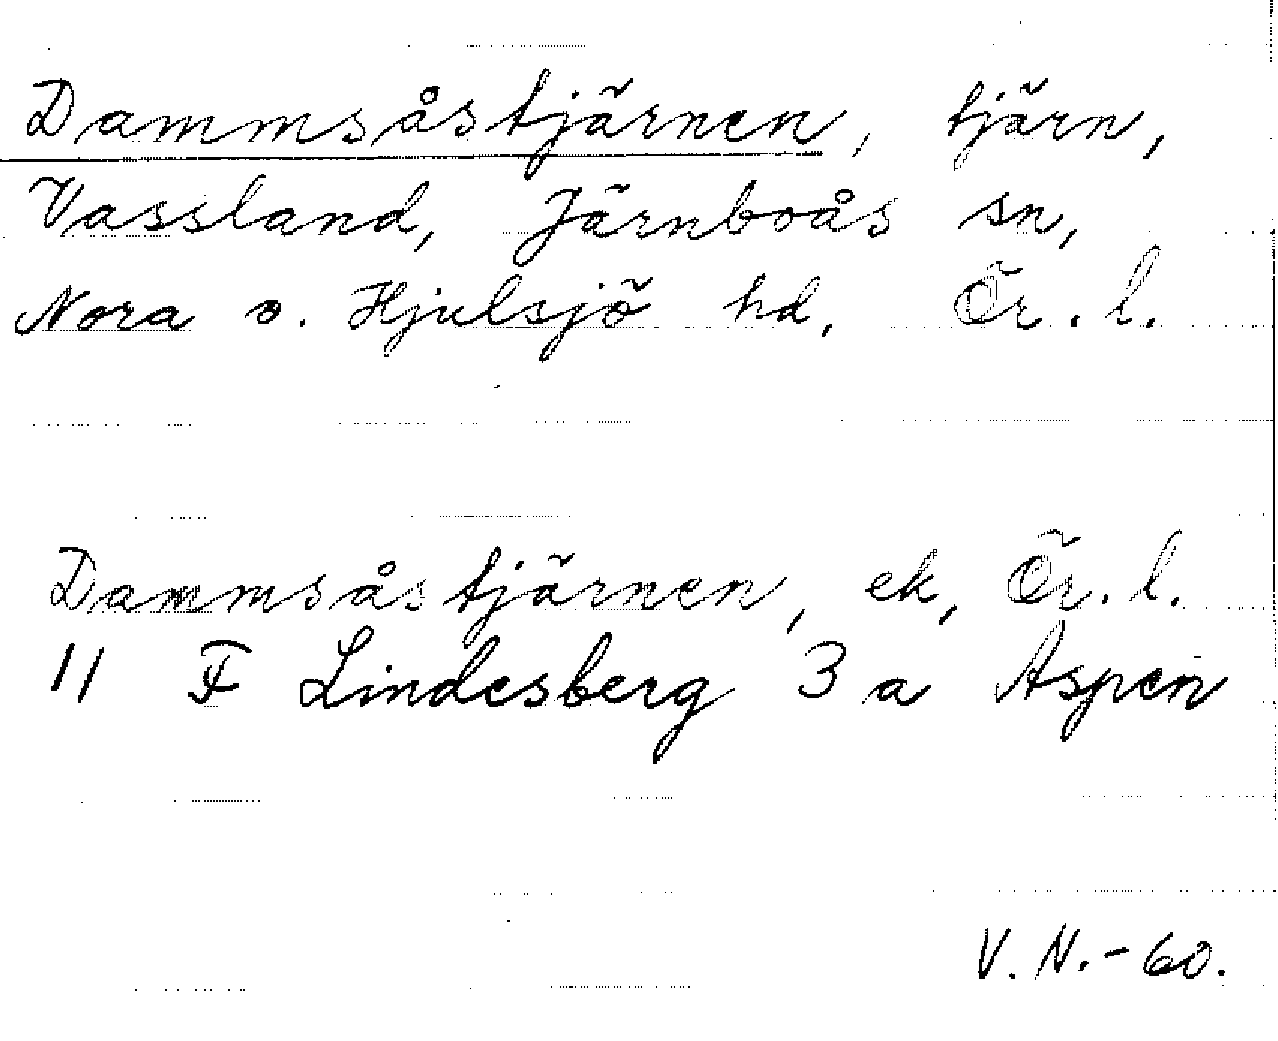 Dammsåstjärnen, tjärn,
Vassland, Järnboås sn,
Nora o. Hjulsjö hd, Ör. l.
Dammsåstjärnen, ek, Ör. l.
11 F Lindesberg 3 a Aspen
V. N. - 60.